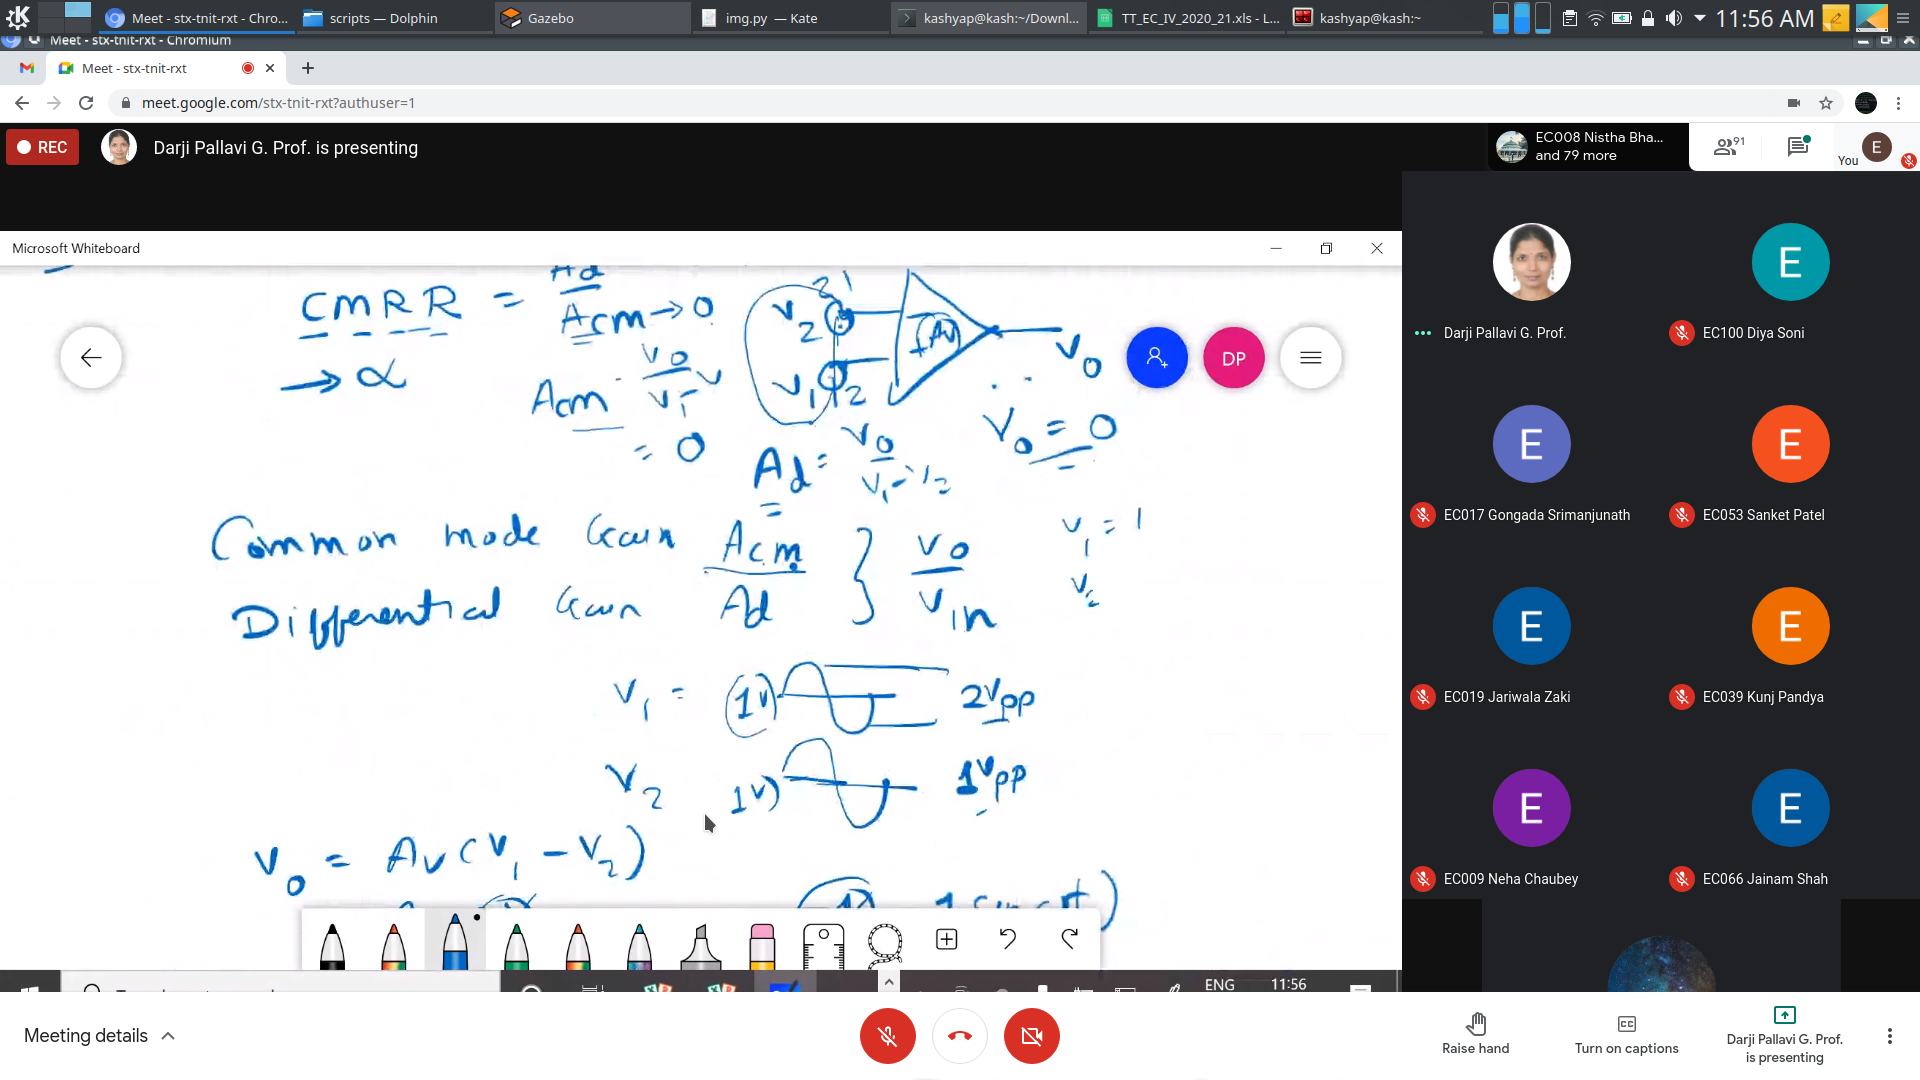 Meet - stx-tnit-rxt - Chro...
scripts — Dolphin
Gazebo
img.py — Kate
kashyap@kash:~/Downl...
TT_EC_IV_2020_21.xls - L...
kashyap@kash:~
11:56 AM
Meet - stx-tnit-rxt - Chromium
Meet - stx-tnit-rxt
meet.google.com/stx-tnit-rxt?authuser=1
REC
Darji Pallavi G. Prof. is presenting
EC008 Nistha Bha...
and 79 more
91
You
E
Microsoft Whiteboard
CMRR = Ad
Acm → 0
→ α
Acm
Vo
= 0
V2
V1
2
1
Av
Vo
DP
Vo = 0
Ad = Vo
V1 - V2
Common mode Gain Acm
Differential Gain Ad
Vo
Vin
V1 = 1
V2
V1 = 1V 2Vpp
V2 1V 1Vpp
Vo = Av(V1 - V2)
ENG
11:56
Darji Pallavi G. Prof.
E
EC100 Diya Soni
E
EC017 Gongada Srimanjunath
E
EC053 Sanket Patel
E
EC019 Jariwala Zaki
E
EC039 Kunj Pandya
E
EC009 Neha Chaubey
E
EC066 Jainam Shah
Meeting details
Raise hand
CC
Turn on captions
Darji Pallavi G. Prof.
is presenting